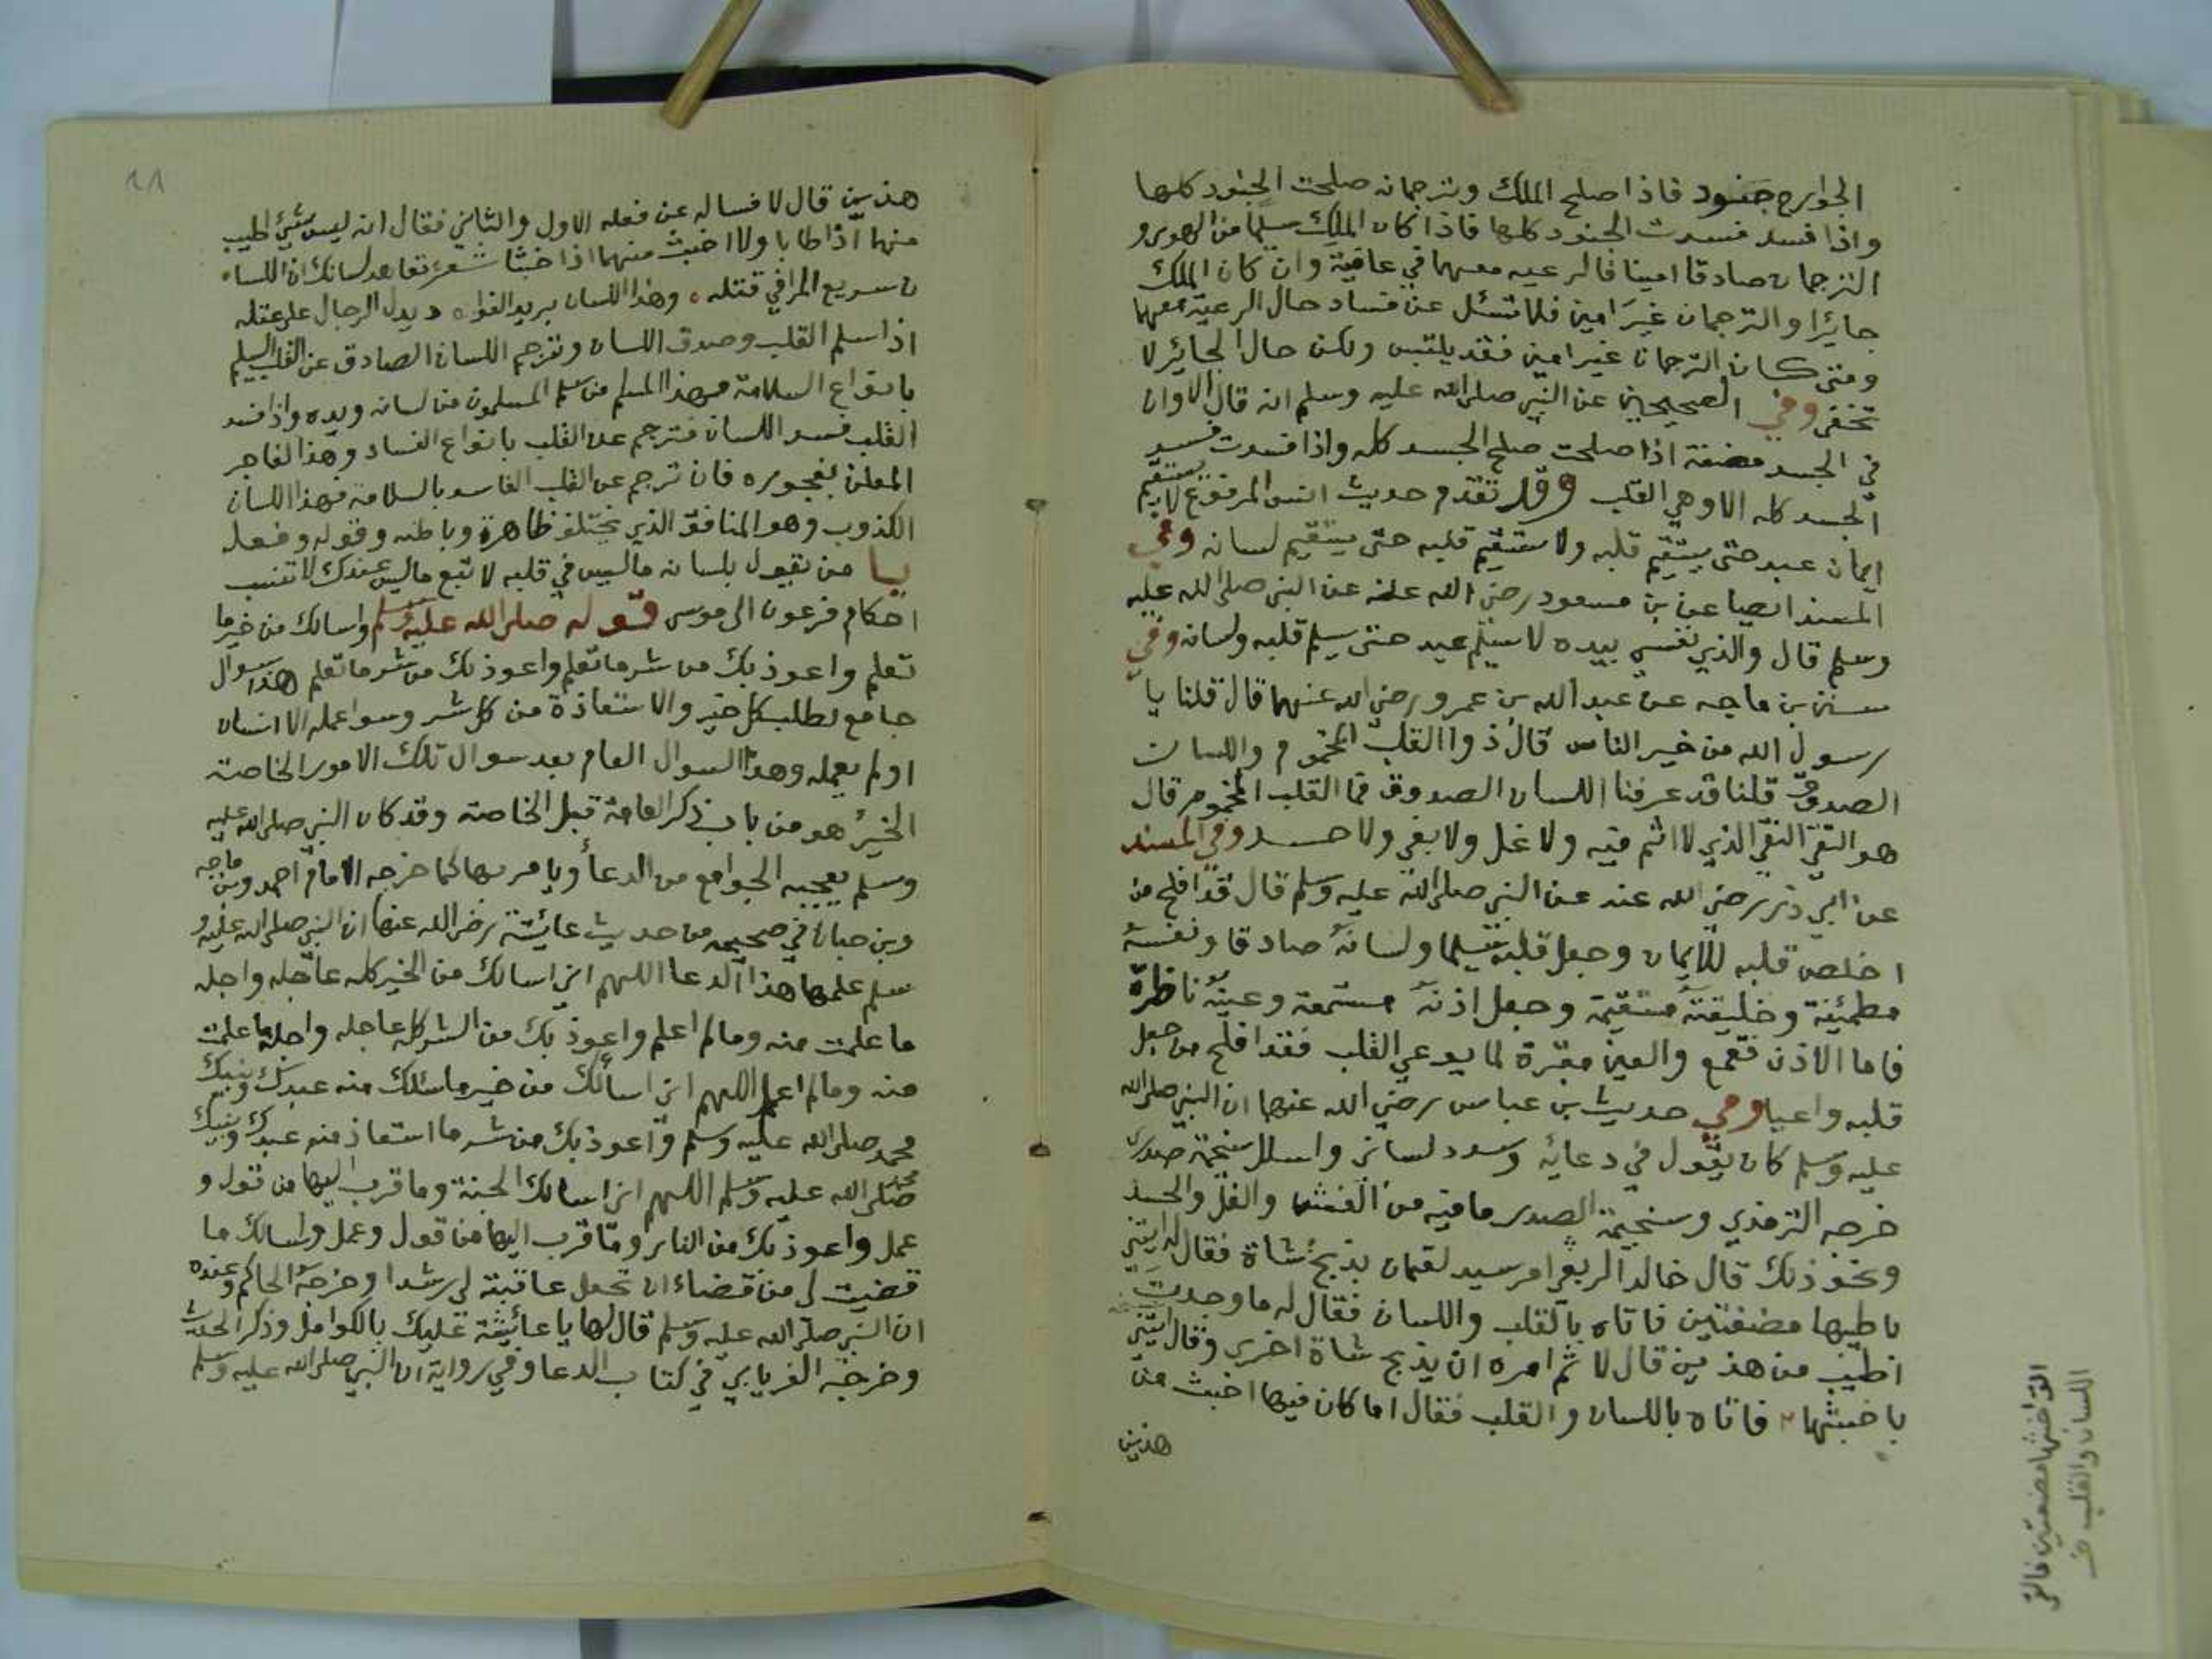 الجوارح جنود فاذا صلح الملك وترجمانه صلحت الجنود كلها
واذا فسد فسدت الجنود كلها فاذا كان الملك سليما من الهوى و
الترجمان صادقا امينا فالرعيه معهما في عافية وان كان الملك
جايرا والترجمان غير امين فلا تسئل عن فساد حال الرعية معهما
ومتى كان الترجمان غير امين فقد يلتبس ولكن حال الجائر لا
تخفى وفي الصحيحين عن النبي صلى الله عليه وسلم انه قال الا وان
في الجسد مضغة اذا صلحت صلح الجسد كله واذا فسدت فسد
الجسد كله الا وهي القلب وقد تقدم حديث انس المرفوع لا يستقيم
ايمان عبد حتى يستقيم قلبه ولا يستقيم قلبه حتى يستقيم لسانه وفي
المسند ايضا عن بن مسعود رضي الله عنه عن النبي صلى الله عليه
وسلم قال والذي نفسي بيده لا يسلم عبد حتى يسلم قلبه ولسانه وفي
سنن بن ماجه عن عبد الله بن عمرو رضي الله عنهما قال قلنا يا
رسول الله من خير الناس قال ذوا القلب المخموم واللسان
الصدوق قلنا قد عرفنا اللسان الصدوق فما القلب المخموم قال
هو التقي النقي الذي لا اثم فيه ولا غل ولا بغي ولا حسد وفي المسند
عن ابي ذر رضي الله عنه عن النبي صلى الله عليه وسلم قال قد افلح من
اخلص قلبه للايمان وجعل قلبه سليما ولسانه صادقا ونفسه
مطمئنة وخليقته مستقيمة وجعل اذنه مستمعة وعينه ناظرة
فاما الاذن فقمع والعين مقرة لما يوعي القلب فقد افلح من جعل
قلبه واعيا وفي حديث بن عباس رضي الله عنهما ان النبي صلى الله
عليه وسلم كان يقول في دعائه وسدد لساني واسلل سخيمة صدري
خرجه الترمذي وسخيمة الصدر ما فيه من الغش والغل والحسد
ونحو ذلك قال خالد الربعي امر سيد لقمان بذبح شاة فقال له ايتني
باطيبها مضغتين فاتاه بالقلب واللسان فقال له ما وجدت
اطيب من هذين قال لا ثم امره ان يذبح شاة اخرى وقال ايتني
باخبثها فاتاه باللسان والقلب فقال اما كان فيها اخبث من
هذين
اللسان والقلب
١٨
هذين قال لا فساله عن فعله الاول والثاني فقال انه ليس شيئ اطيب
منهما اذا طابا ولا اخبث منهما اذا خبثا شعر تعاهد لسانك ان اللسا
ن سريع المرا في قتله وهذا اللسان بريد الفوا د يدل الرجال على عقله
اذا سلم القلب وصدق اللسان وترجم اللسان الصادق عن القلب السليم
بانواع السلامة فهذا المسلم من سلم المسلمون من لسانه ويده واذا فسد
القلب فسد اللسان فترجم عن القلب بانواع الفساد وهذا الفاجر
المعلن بفجوره فان ترجم عن القلب الفاسد بالسلامة فهذا اللسان
الكذوب وهو المنافق الذي يختلف ظاهرة وباطنه وقوله وفعل
يا من يقول بلسانه ماليس في قلبه لا تبع ماليس عندك لا تنسب
احكام فرعون الى موسى قوله صلى الله عليه وسلم واسالك من خير ما
تعلم واعوذ بك من شر ما تعلم واعوذ بك من شر ما تعلم هذا سوال
جامع لطلب كل خير والاستعاذة من كل شر وسوا عمله الانسان
اولم يعمله وهذا السوال العام بعد سوال تلك الامور الخاصة
الخير هو من باب ذكر العامة قبل الخاصة وقد كان النبي صلى الله عليه
وسلم يعجبه الجوامع من الدعا ويامر بها كما خرجه الامام احمد وبن ماجه
وبن حبان في صحيحه من حديث عائشة رضي الله عنها ان النبي صلى الله عليه و
سلم علمها هذا الدعا اللهم اني اسالك من الخير كله عاجله واجله
ما علمت منه ومالم اعلم واعوذ بك من الشر كله عاجله واجله ما علمت
منه ومالم اعلم اللهم اني اسألك من خير ما سئلك منه عبدك ونبيك
محمد صلى الله عليه وسلم واعوذ بك من شر ما استعاذ منه عبدك ونبيك
محمد صلى الله عليه وسلم اللهم اني اسالك الجنة وما قرب اليها من قول و
عمل واعوذ بك من النار وما قرب اليها من قول وعمل واسالك ما
قضيت لي من قضاء ان تجعل عاقبته لي رشدا وخرجه الحاكم وعنده
ان النبي صلى الله عليه وسلم قال لها يا عائشة عليك بالكوامل وذكر الحديث
وخرجه الفريابي في كتاب الدعا وفي رواية ان النبي صلى الله عليه وسلم